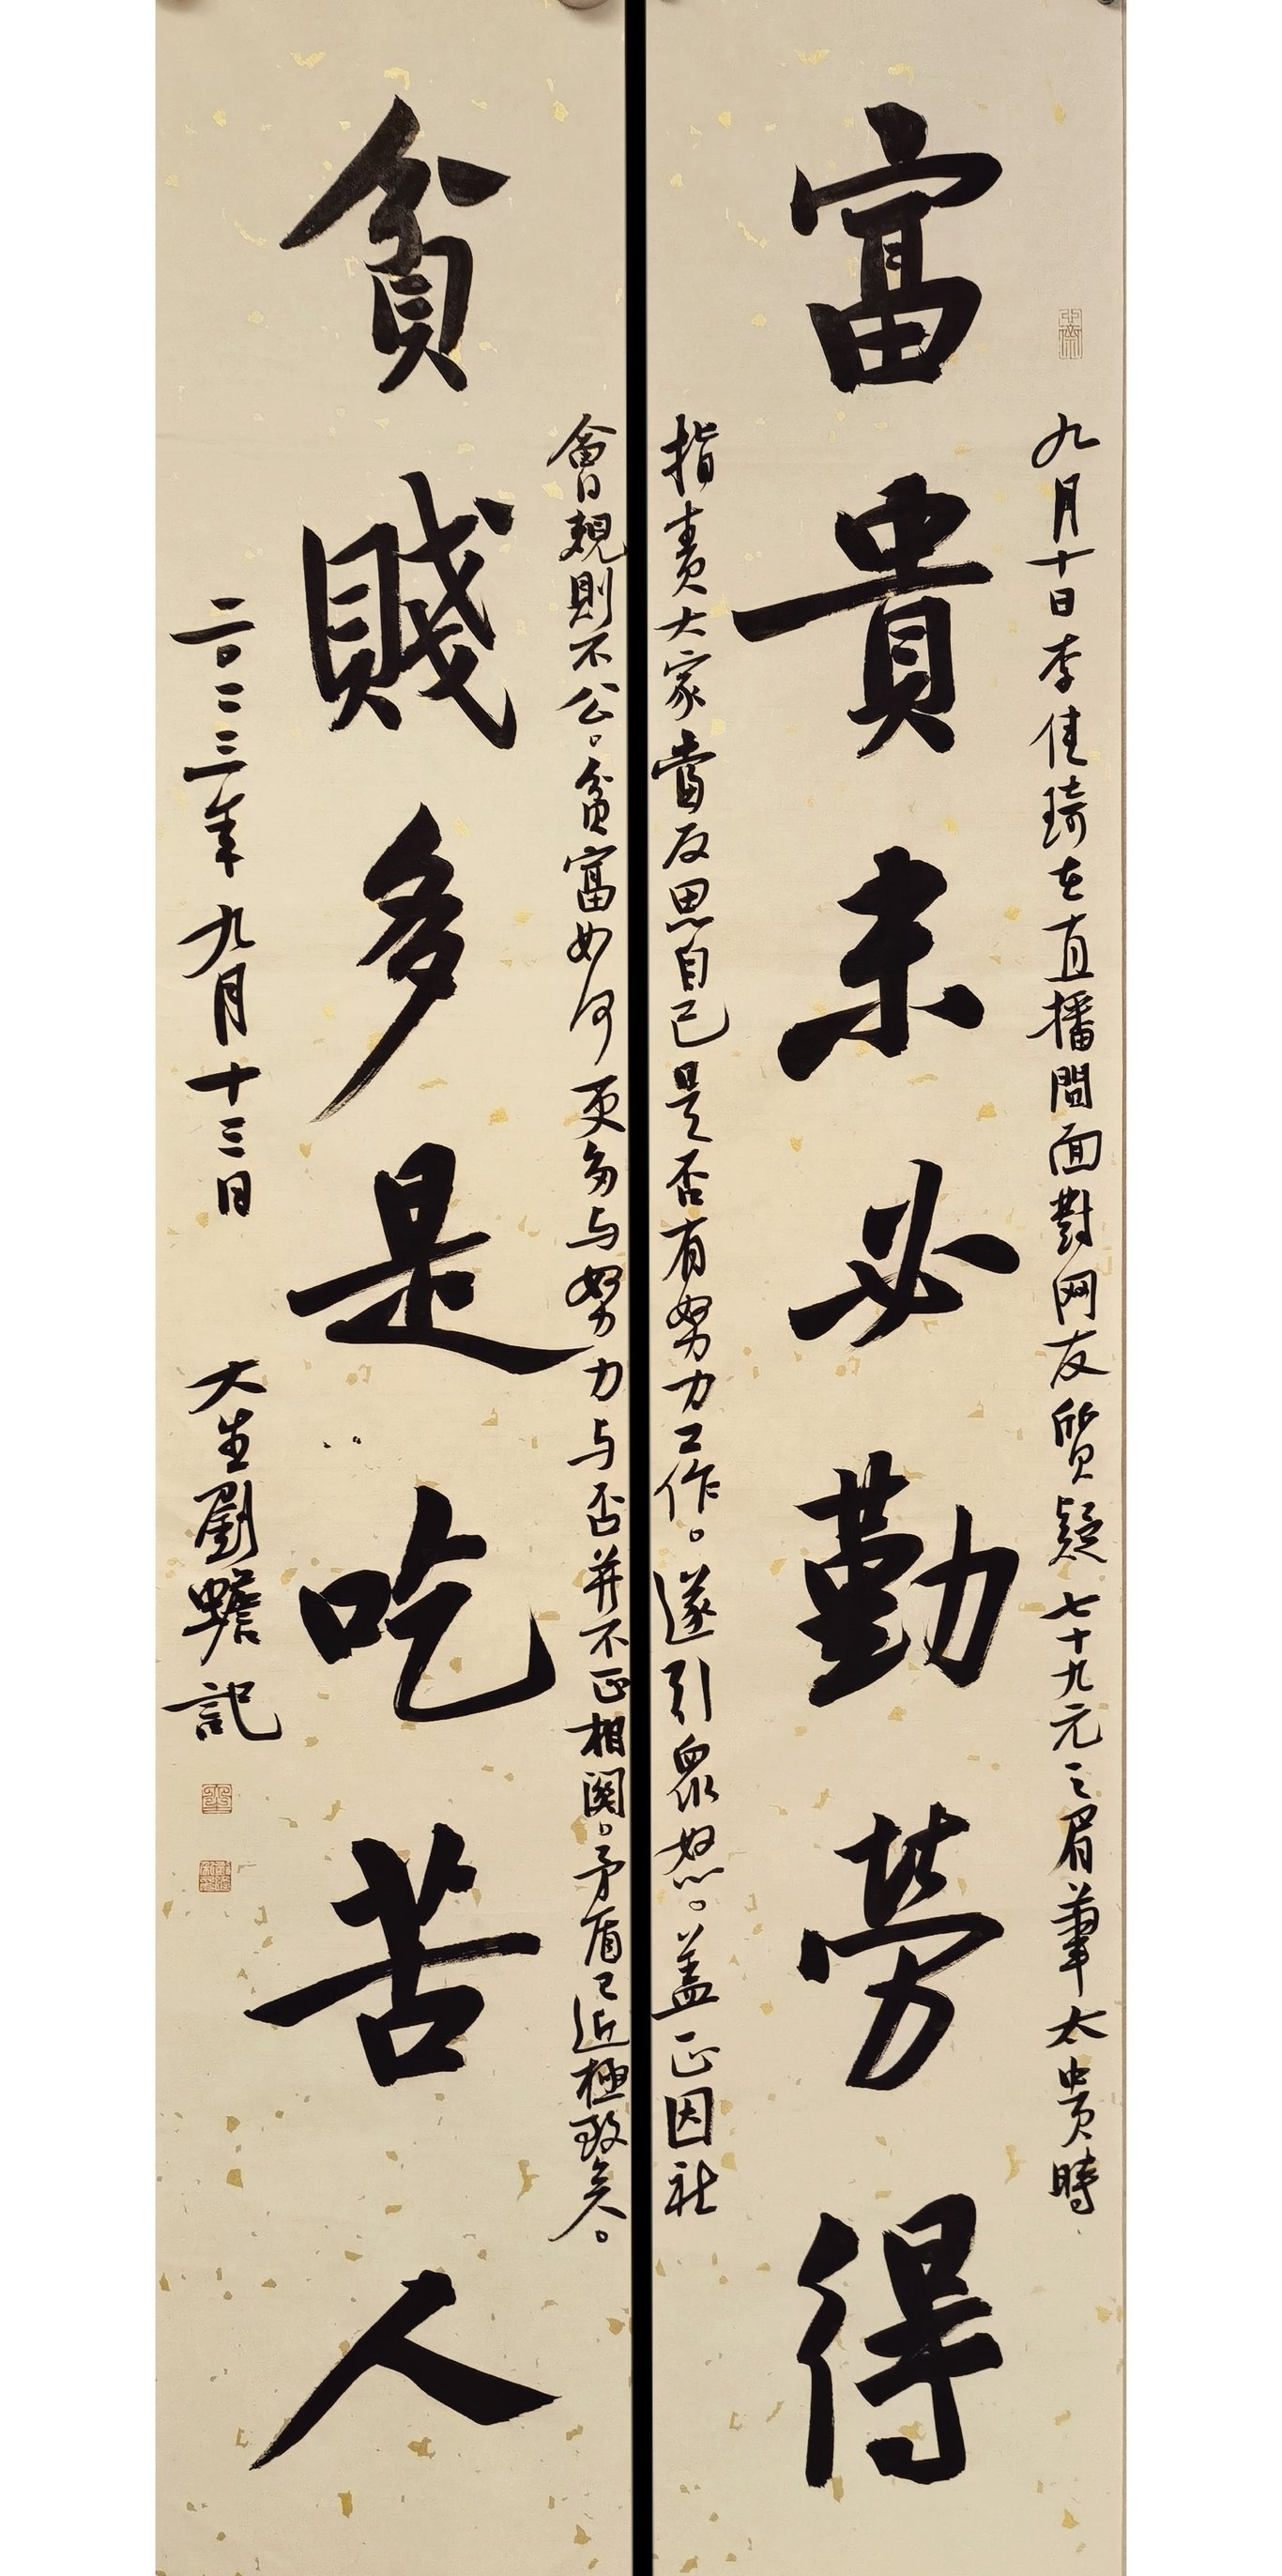 九月十日李佳琦在直播間面對网友質疑七十九元之眉筆太貴時
富貴未必勤勞得
指責大家當反思自己是否有努力工作。遂引眾怒。蓋正因社
會規則不公。貧富如何更多与努力与否并不正相関。矛盾已近極致矣。
貧賤多是吃苦人
二〇二三年九月十三日 大生劉蟾記